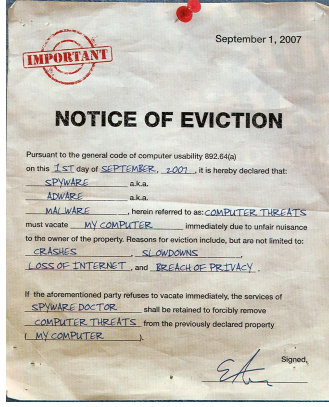 September 1, 2007
IMPORTANT
NOTICE OF EVICTION
Pursuant to the general code of computer usability 892.64(a)
on this 1ST day of SEPTEMBER, 2007, it is hereby declared that:
SPYWARE a.k.a.
ADWARE a.k.a.
MALWARE, herein referred to as: COMPUTER THREATS
must vacate MY COMPUTER immediately due to unfair nuisance
to the owner of the property. Reasons for eviction include, but are not limited to:
CRASHES, SLOWDOWNS
LOSS OF INTERNET, and BREACH OF PRIVACY.
If the aforementioned party refuses to vacate immediately, the services of
SPYWARE DOCTOR shall be retained to forcibly remove
COMPUTER THREATS from the previously declared property
( MY COMPUTER ).
Signed,